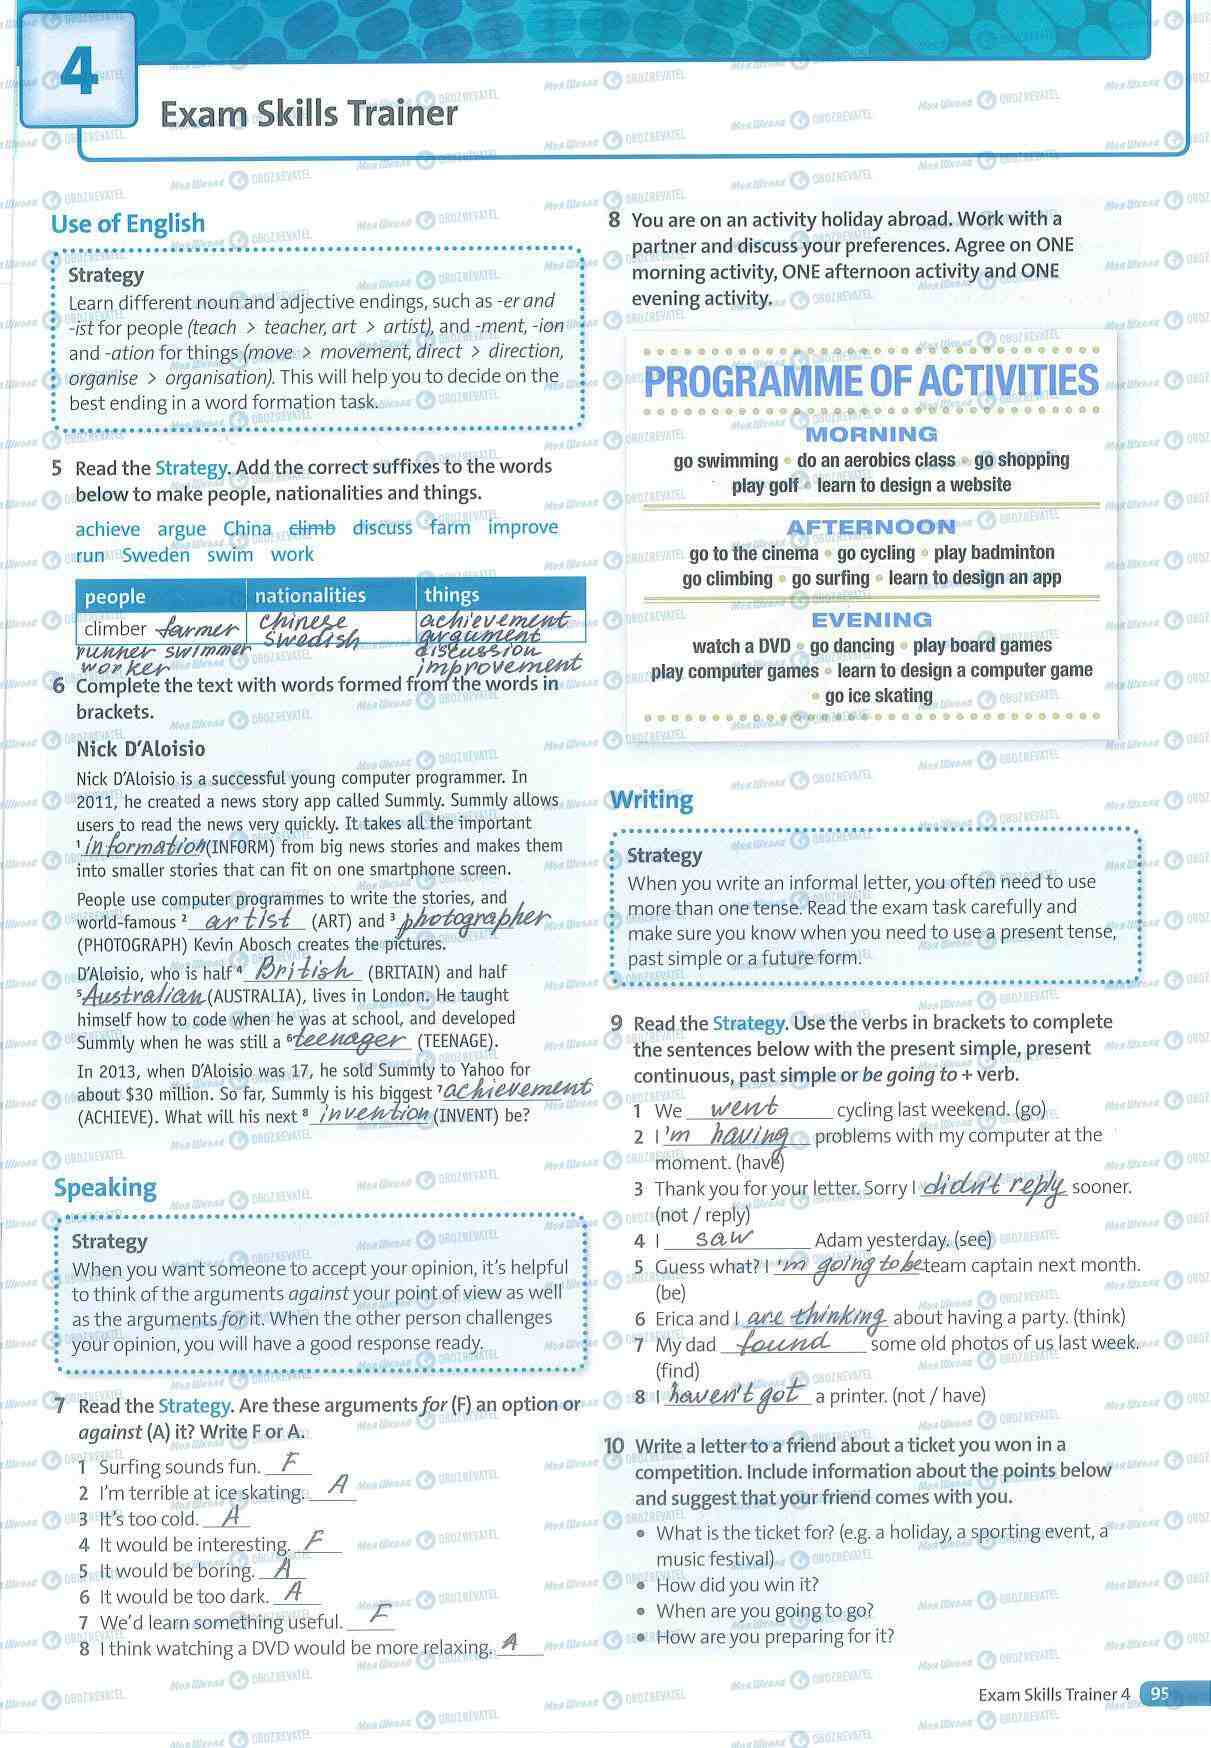 4
Exam Skills Trainer
Use of English
Strategy
Learn different noun and adjective endings, such as -er and
-ist for people (teach > teacher, art > artist), and -ment, -ion
and -ation for things (move > movement, direct > direction,
organise > organisation). This will help you to decide on the
best ending in a word formation task.
5 Read the Strategy. Add the correct suffixes to the words
below to make people, nationalities and things.
achieve argue China climb discuss farm improve
run Sweden swim work
people nationalities things
climber farmer chinese achievement
swedish argument
runner swimmer discussion
worker improvement
6 Complete the text with words formed from the words in
brackets.
Nick D'Aloisio
Nick D'Aloisio is a successful young computer programmer. In
2011, he created a news story app called Summly. Summly allows
users to read the news very quickly. It takes all the important
1 information (INFORM) from big news stories and makes them
into smaller stories that can fit on one smartphone screen.
People use computer programmes to write the stories, and
world-famous 2 artist (ART) and 3 photographer
(PHOTOGRAPH) Kevin Abosch creates the pictures.
D'Aloisio, who is half 4 British (BRITAIN) and half
5 Australian (AUSTRALIA), lives in London. He taught
himself how to code when he was at school, and developed
Summly when he was still a 6 teenager (TEENAGE).
In 2013, when D'Aloisio was 17, he sold Summly to Yahoo for
about $30 million. So far, Summly is his biggest 7 achievement
(ACHIEVE). What will his next 8 invention (INVENT) be?
Speaking
Strategy
When you want someone to accept your opinion, it's helpful
to think of the arguments against your point of view as well
as the arguments for it. When the other person challenges
your opinion, you will have a good response ready.
7 Read the Strategy. Are these arguments for (F) an option or
against (A) it? Write F or A.
1 Surfing sounds fun. F
2 I'm terrible at ice skating. A
3 It's too cold. A
4 It would be interesting. F
5 It would be boring. A
6 It would be too dark. A
7 We'd learn something useful. F
8 I think watching a DVD would be more relaxing. A
8 You are on an activity holiday abroad. Work with a
partner and discuss your preferences. Agree on ONE
morning activity, ONE afternoon activity and ONE
evening activity.
PROGRAMME OF ACTIVITIES
MORNING
go swimming • do an aerobics class • go shopping
play golf • learn to design a website
AFTERNOON
go to the cinema • go cycling • play badminton
go climbing • go surfing • learn to design an app
EVENING
watch a DVD • go dancing • play board games
play computer games • learn to design a computer game
• go ice skating
Writing
Strategy
When you write an informal letter, you often need to use
more than one tense. Read the exam task carefully and
make sure you know when you need to use a present tense,
past simple or a future form.
9 Read the Strategy. Use the verbs in brackets to complete
the sentences below with the present simple, present
continuous, past simple or be going to + verb.
1 We went cycling last weekend. (go)
2 I 'm having problems with my computer at the
moment. (have)
3 Thank you for your letter. Sorry I didn't reply sooner.
(not / reply)
4 I saw Adam yesterday. (see)
5 Guess what? I 'm going to be team captain next month.
(be)
6 Erica and I are thinking about having a party. (think)
7 My dad found some old photos of us last week.
(find)
8 I haven't got a printer. (not / have)
10 Write a letter to a friend about a ticket you won in a
competition. Include information about the points below
and suggest that your friend comes with you.
• What is the ticket for? (e.g. a holiday, a sporting event, a
music festival)
• How did you win it?
• When are you going to go?
• How are you preparing for it?
Exam Skills Trainer 4 95
Моя Школа OBOZREVATEL